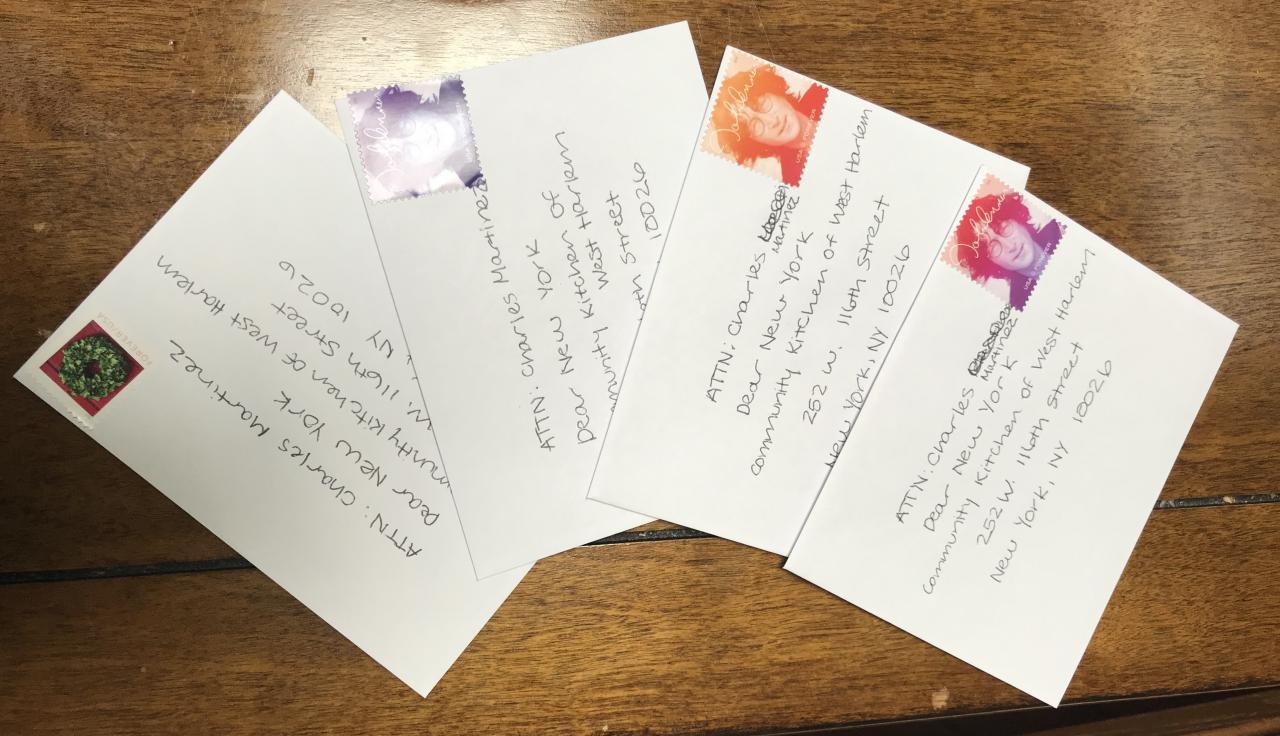 FOREVER/USA
ATTN: Charles Martinez
Dear New York
munity Kitchen of West Harlem
W. 116th Street
, NY 10026
John Lennon
ATTN: Charles Martinez
Dear New York
mmunity Kitchen of
West Harlem
th Street
10026
John Lennon
USA FOREVER
ATTN: Charles
Martinez
Dear New York
Community Kitchen of West Harlem
252 W. 116th Street
New York, NY 10026
John Lennon
USA FOREVER
ATTN: Charles
Martinez
Dear New York
Community Kitchen of West Harlem
252 W. 116th Street
New York, NY 10026